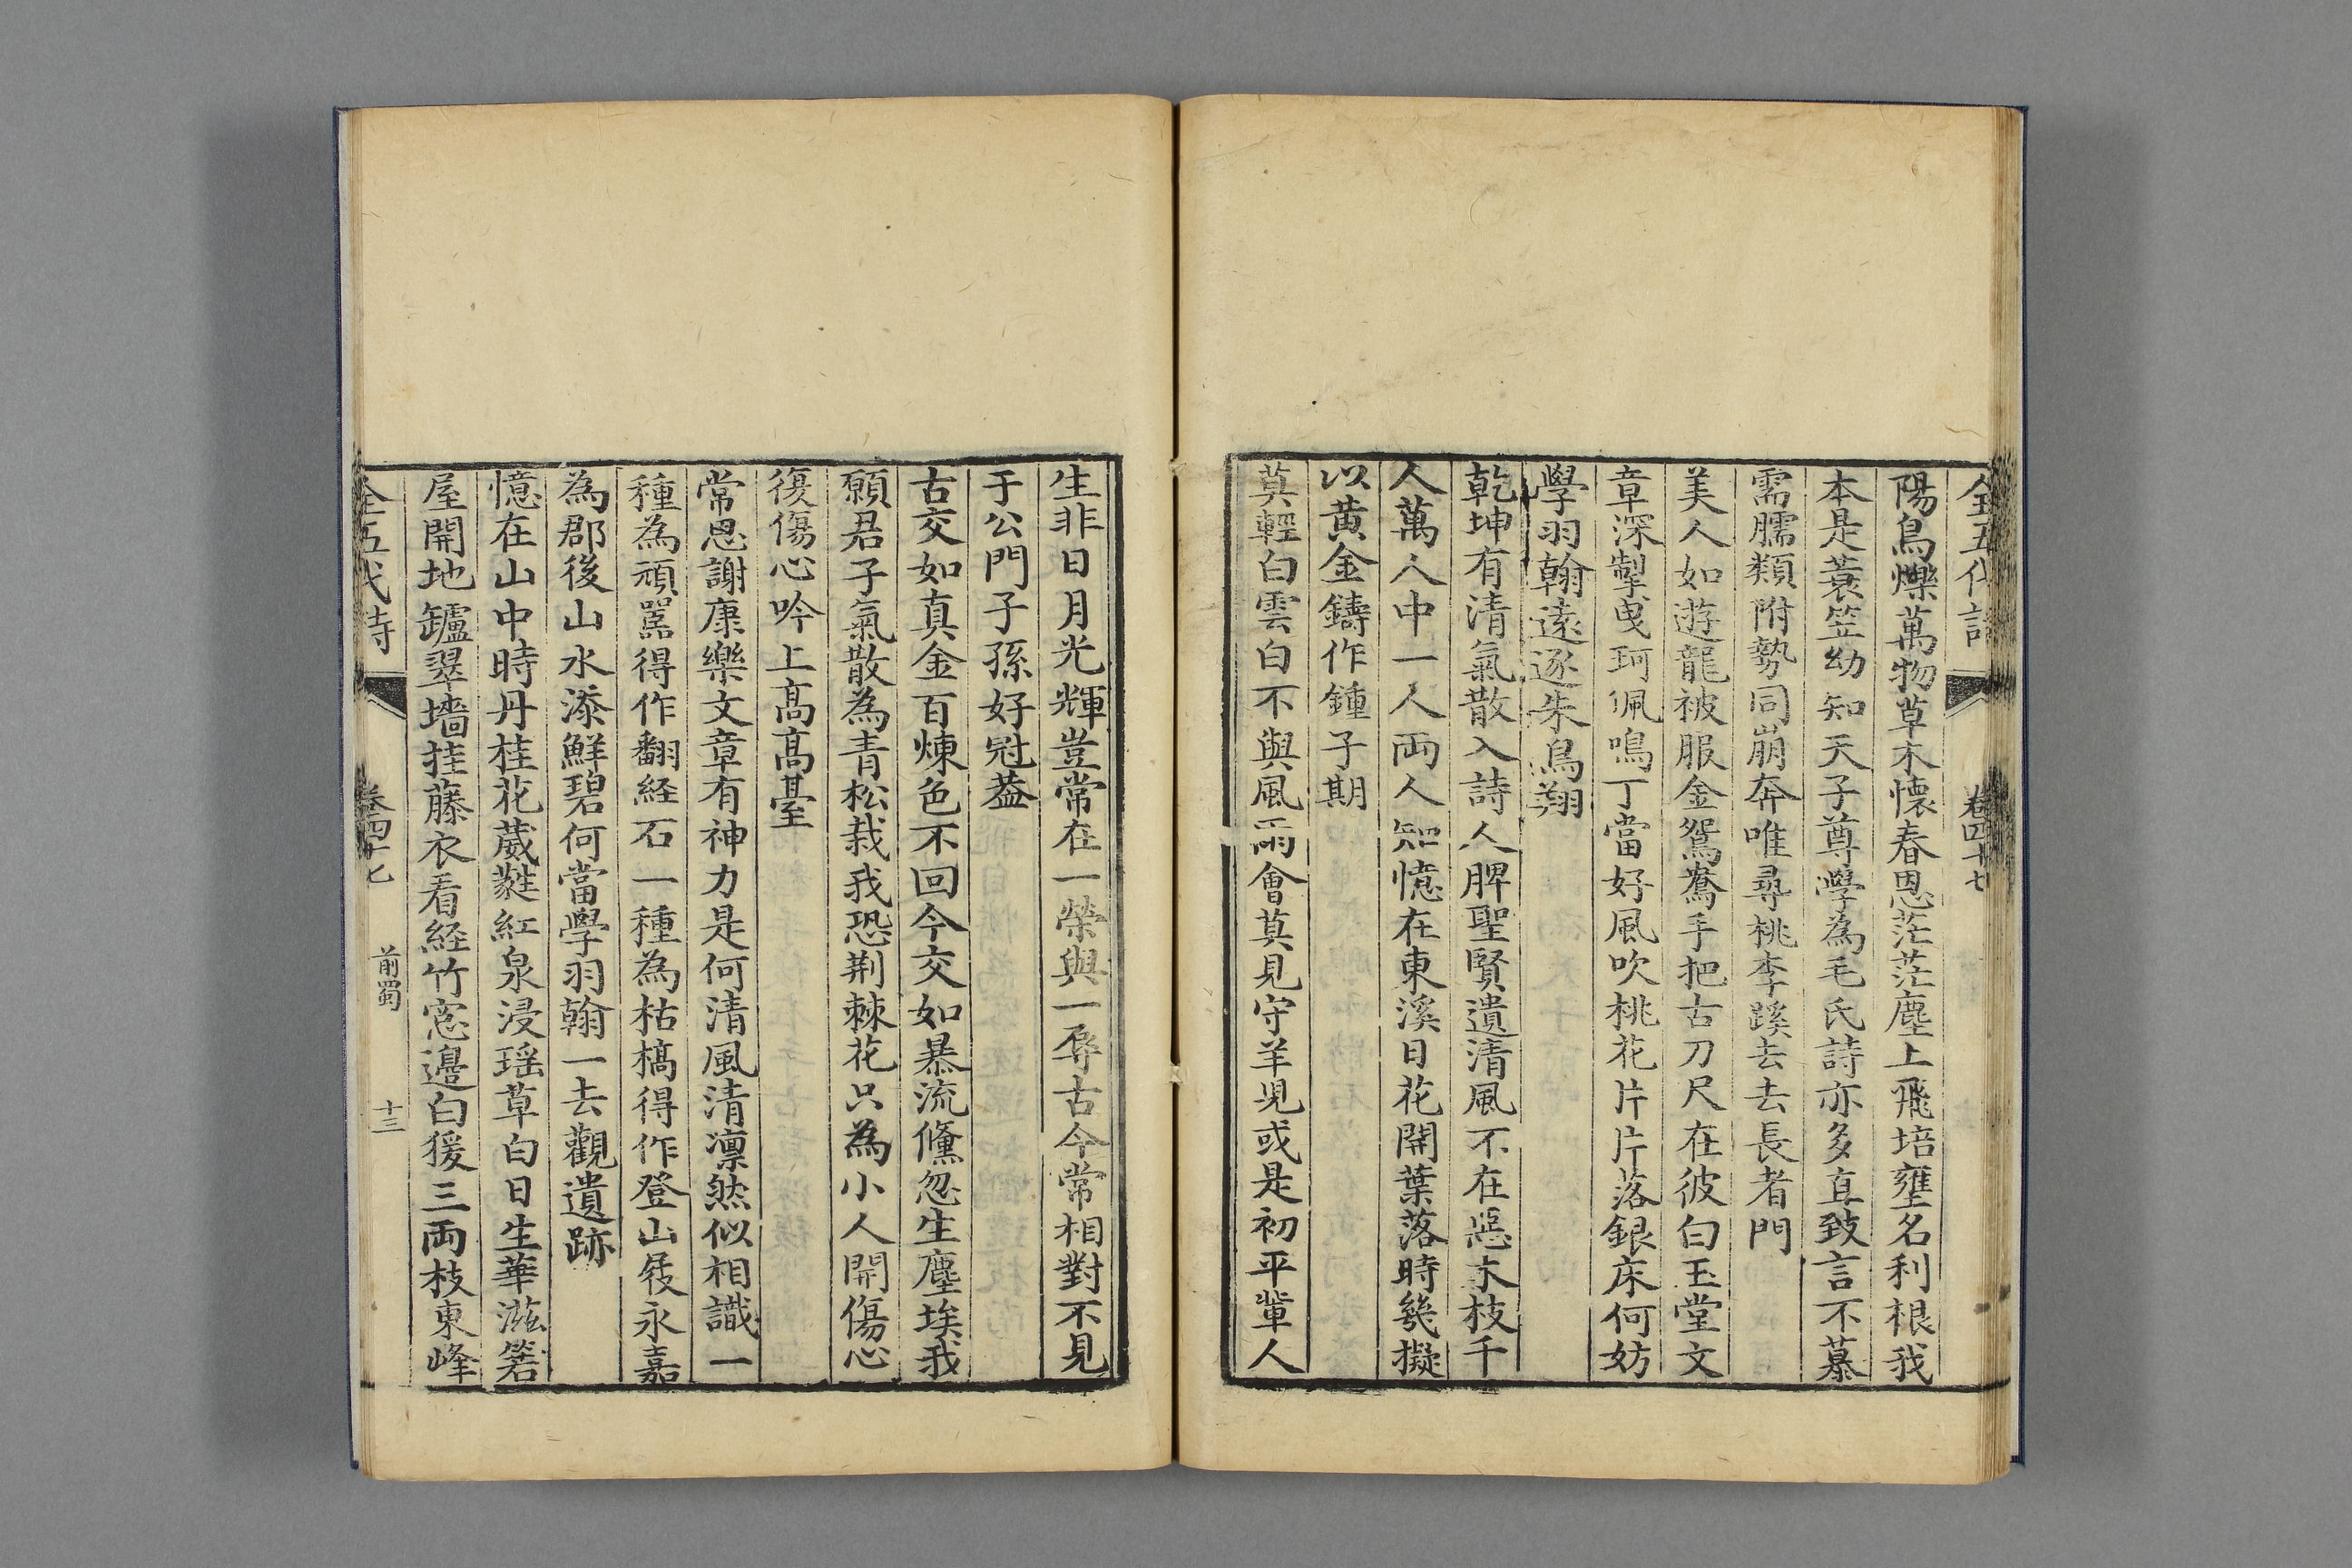 全五代詩
卷四十七
陽烏爍萬物草木懷春恩茫茫塵土飛培壅名利根我
本是蓑笠幼知天子尊學為毛氏詩亦多直致言不慕
需臑類附勢同崩奔唯尋桃李蹊去去長者門
美人如遊龍被服金鴛鴦手把古刀尺在彼白玉堂文
章深掣曳珂佩鳴丁當好風吹桃花片片落銀床何妨
學羽翰遠逐朱鳥翔
乾坤有清氣散入詩人脾聖賢遺清風不在惡木枝千
人萬人中一人兩人知憶在東溪日花開葉落時幾擬
以黃金鑄作鍾子期
莫輕白雲白不與風雨會莫見守羊兒或是初平輩人
生非日月光輝豈常在一榮與一辱古今常相對不見
于公門子孫好冠蓋
古交如真金百煉色不回今交如暴流儵忽生塵埃我
願君子氣散為青松栽我恐荆棘花只為小人開傷心
復傷心吟上高高臺
常思謝康樂文章有神力是何清風清凛然似相識一
種為頑嚚得作翻経石一種為枯槁得作登山屐永嘉
為郡後山水添鮮碧何當學羽翰一去觀遺跡
憶在山中時丹桂花葳蕤紅泉浸瑶草白日生華滋箬
屋開地罏翠墻挂藤衣看経竹窓邊白猨三兩枝東峰
全五代詩
卷四十七
前蜀
十三